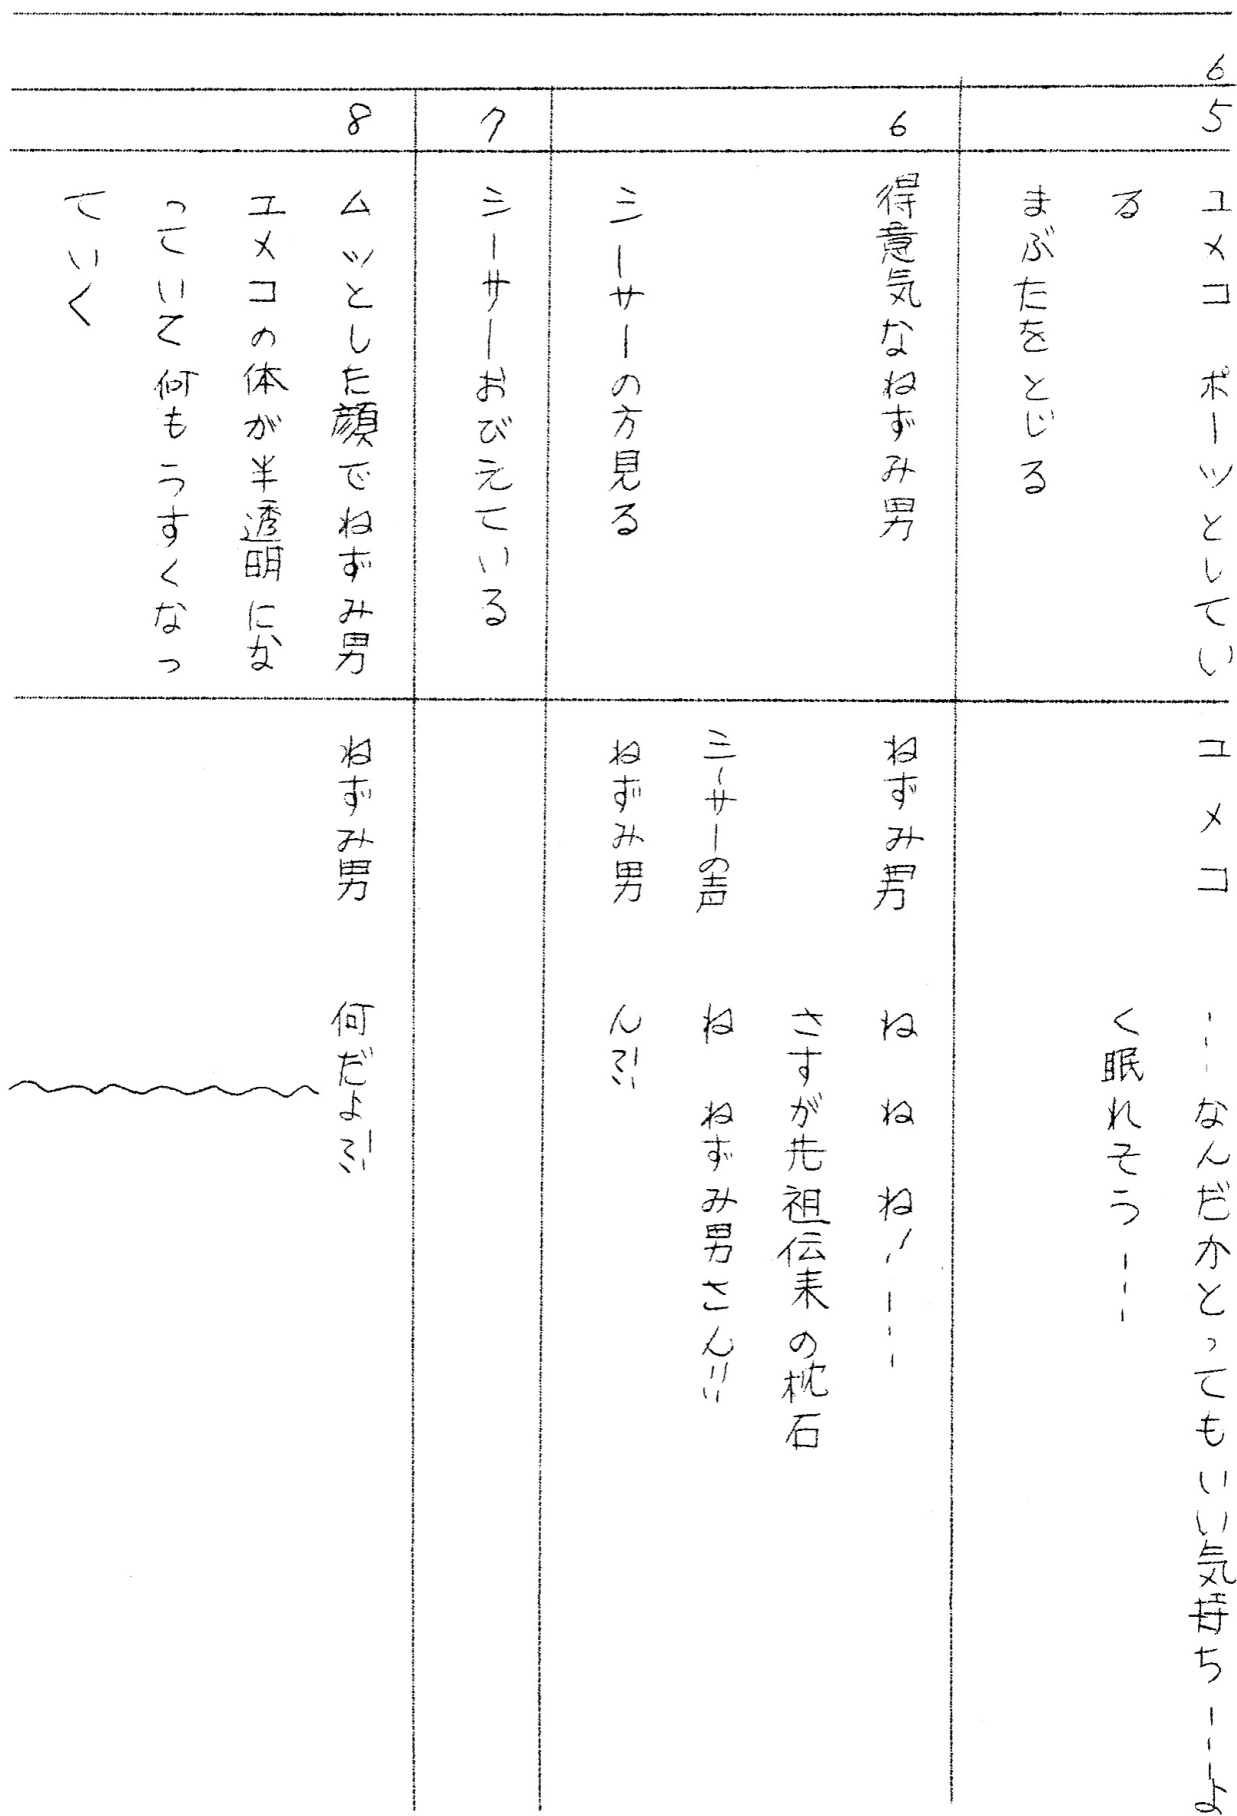 6
5
ユメコ ポーッとしてい
る
まぶたをとじる
ユメコ
……なんだかとってもいい気持ち……よ
く眠れそう………
6
得意気なねずみ男
シーサーの方見る
ねずみ男
ね ね ね!……
さすが先祖伝来の枕石
シーサーの声
ね ねずみ男さん!!
ねずみ男
ん?!
7
シーサーおびえている
8
ムッとした顔でねずみ男
ユメコの体が半透明にな
っていて何もうすくなっ
ていく
ねずみ男
何だよ?!